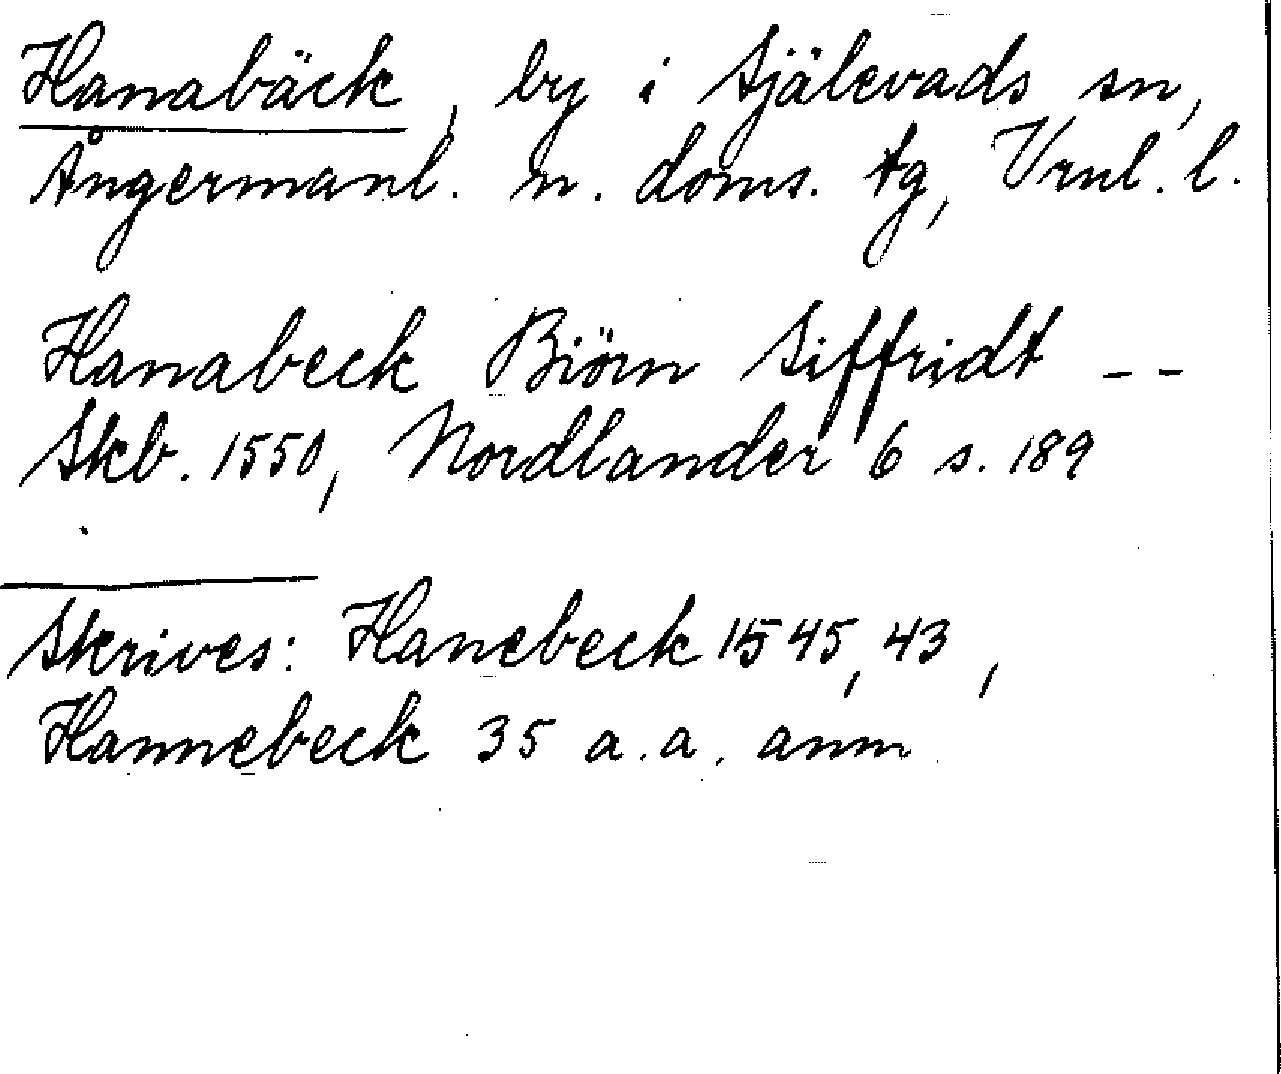 Hanabäck, by i Själevads sn,
Ångermanl. n. doms. tg, Vrnl. l.
Hanabeck Biörn Siffridt --
Skb. 1550, Nordlander 6 s. 189
Skrives: Hanebeck 1545, 43,
Hannebeck 35 a.a. anm